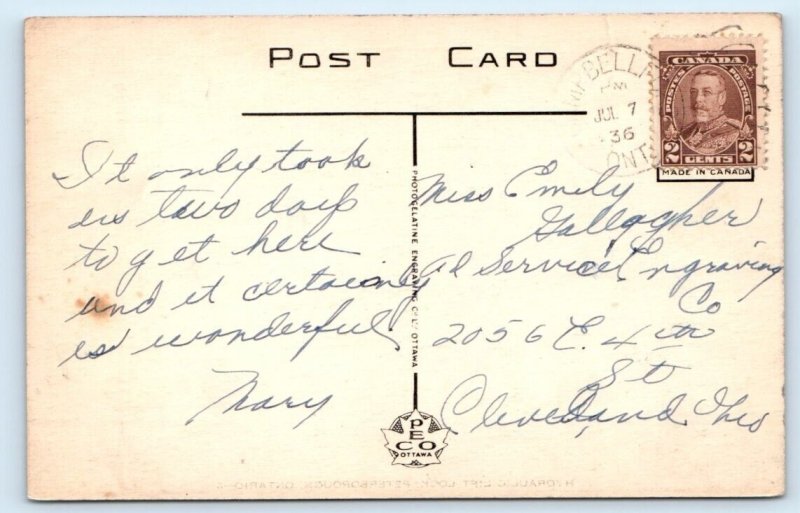 POST CARD
BELLA
PM
JUL 7
36
ONT
CANADA
POSTES POSTAGE
2 CENTS 2
MADE IN CANADA
It only took
us two days
to get here
and it certainly
is wonderful
Mary
PHOTOGELATINE ENGRAVING CO. LTD. OTTAWA
PECO
OTTAWA
Miss Emily
Gallagher
Ad Service Engraving
Co
2056 E. 4th
St
Cleveland Ohio
HYDRAULIC LIFT LOCK, PETERBOROUGH, ONTARIO